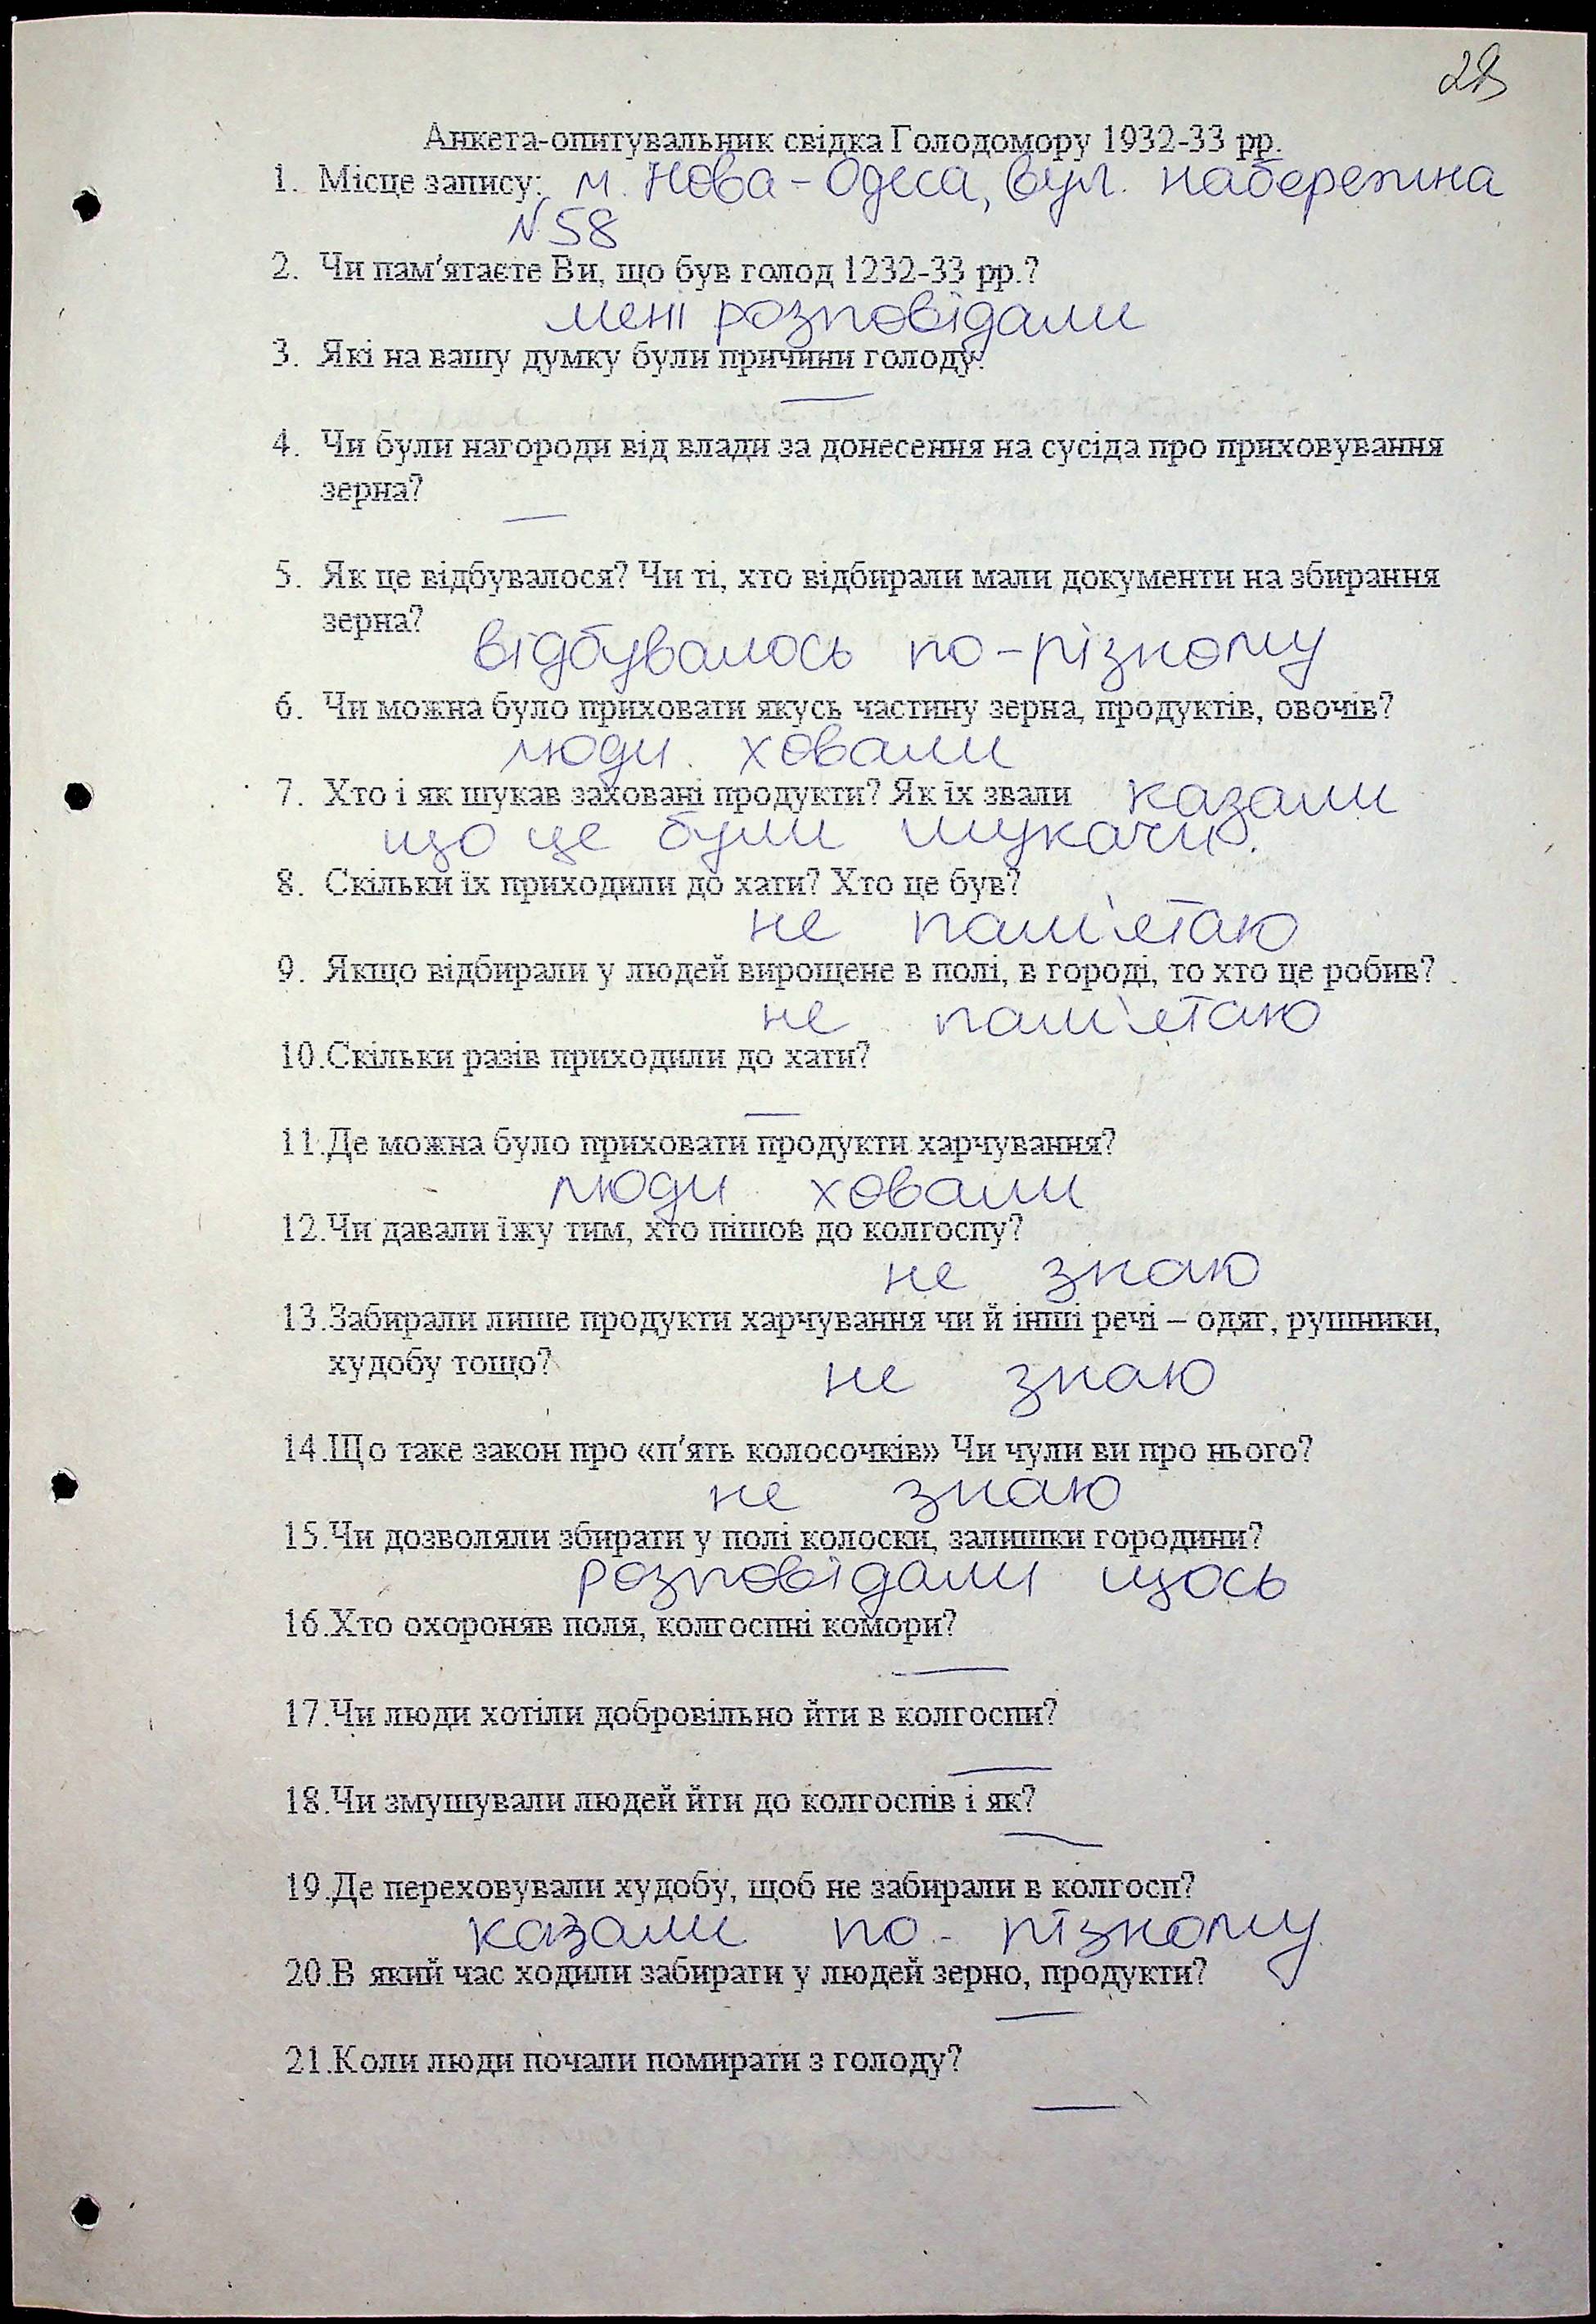 Анкета-опитувальник свідка Голодомору 1932-33 рр.
1. Місце запису: м. Нова-Одеса, вул. набережна
№58
2. Чи пам’ятаєте Ви, що був голод 1232-33 рр.?
мені розповідали
3. Які на вашу думку були причини голоду?
—
4. Чи були нагороди від влади за донесення на сусіда про приховування
зерна?
—
5. Як це відбувалося? Чи ті, хто відбирали мали документи на збирання
зерна?
відбувалось по-різному
6. Чи можна було приховати якусь частину зерна, продуктів, овочів?
люди ховали
7. Хто і як шукав заховані продукти? Як їх звали казали
що це були шукачі.
8. Скільки їх приходили до хати? Хто це був?
не пам'ятаю
9. Якщо відбирали у людей вирощене в полі, в городі, то хто це робив?
не пам'ятаю
10.Скільки разів приходили до хати?
—
11.Де можна було приховати продукти харчування?
люди ховали
12.Чи давали їжу тим, хто пішов до колгоспу?
не знаю
13.Забирали лише продукти харчування чи й інші речі – одяг, рушники,
худобу тощо?
не знаю
14.Що таке закон про «п’ять колосочків» Чи чули ви про нього?
не знаю
15.Чи дозволяли збирати у полі колоски, залишки городини?
розповідали щось
16.Хто охороняв поля, колгоспні комори?
—
17.Чи люди хотіли добровільно йти в колгоспи?
—
18.Чи змушували людей йти до колгоспів і як?
—
19.Де переховували худобу, щоб не забирали в колгосп?
казали по-різному
20.В який час ходили забирати у людей зерно, продукти?
—
21.Коли люди почали помирати з голоду?
—